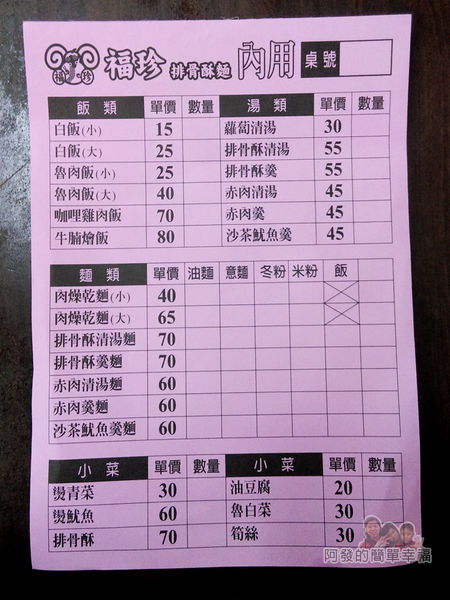 福珍
福珍 排骨酥麵 內用 桌號
飯類 單價 數量 湯類 單價 數量
白飯(小) 15 蘿蔔清湯 30
白飯(大) 25 排骨酥清湯 55
魯肉飯(小) 25 排骨酥羹 55
魯肉飯(大) 40 赤肉清湯 45
咖哩雞肉飯 70 赤肉羹 45
牛腩燴飯 80 沙茶魷魚羹 45
麵類 單價 油麵 意麵 冬粉 米粉 飯
肉燥乾麵(小) 40
肉燥乾麵(大) 65
排骨酥清湯麵 70
排骨酥羹麵 70
赤肉清湯麵 60
赤肉羹麵 60
沙茶魷魚羹麵 60
小菜 單價 數量 小菜 單價 數量
燙青菜 30 油豆腐 20
燙魷魚 60 魯白菜 30
排骨酥 70 筍絲 30
阿發的簡單幸福